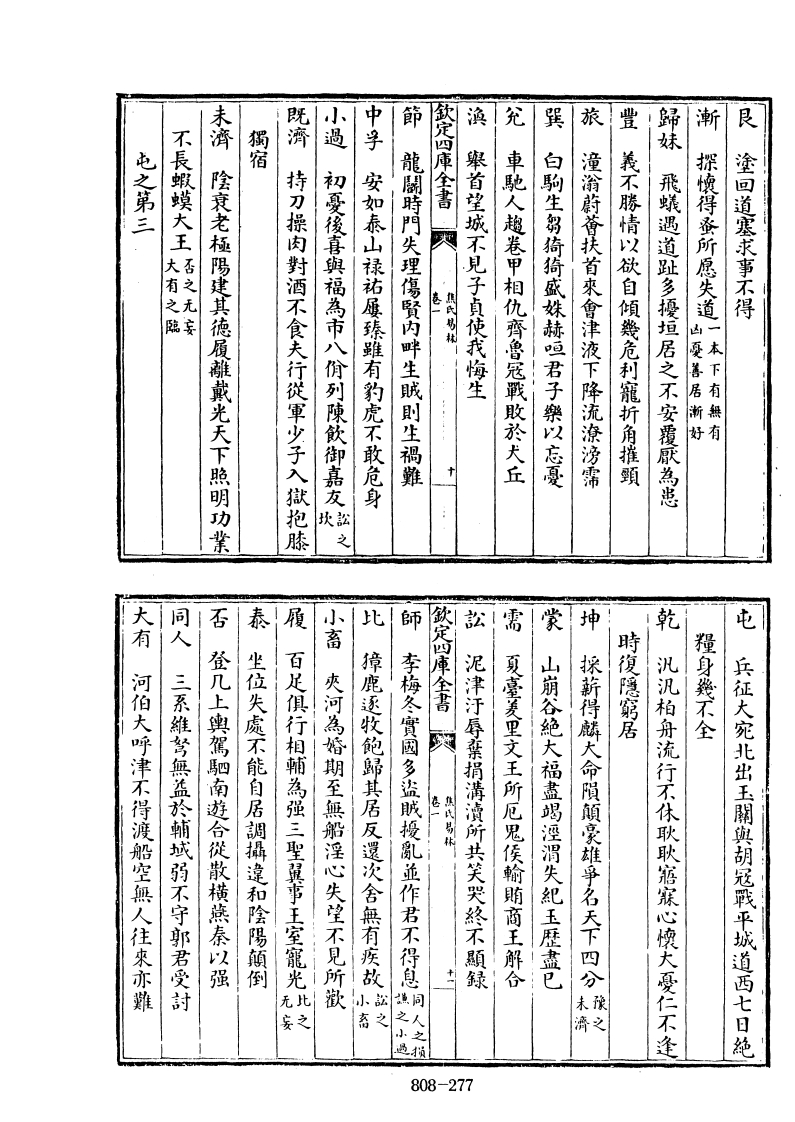 艮　塗回道塞求事不得
漸　探懷得蚤所愿失道一本下有無有凶憂善居漸好
歸妹　飛蟻遇道趾多擾垣居之不安覆厭為患
豐　義不勝情以欲自傾幾危利寵折角摧頸
旅　潼滃蔚薈扶首來會津液下降流潦滂霈
巽　白駒生芻猗猗盛姝赫咺君子樂以忘憂
兌　車馳人趨卷甲相仇齊魯冦戰敗於犬丘
渙　舉首望城不見子貞使我悔生
欽定四庫全書　焦氏易林　卷一　十
節　龍鬬時門失理傷賢內畔生賊則生禍難
中孚　安如泰山祿祐屢臻雖有豹虎不敢危身
小過　初憂後喜與福為市八佾列陳飲御嘉友訟之坎
既濟　持刀操肉對酒不食夫行從軍少子入獄抱膝
獨宿
未濟　陰衰老極陽建其德履離戴光天下照明功業
不長蝦蟆大王否之无妄大有之臨
屯之第三
屯　兵征大宛北出玉關與胡冦戰平城道西七日絕
糧身幾不全
乾　汎汎柏舟流行不休耿耿寤寐心懷大憂仁不逢
時復隱窮居
坤　採薪得麟大命隕顛豪雄爭名天下四分豫之未濟
蒙　山崩谷絕大福盡竭涇渭失紀玉歷盡已
需　夏臺羑里文王所厄鬼侯輸賄商王解合
訟　泥津汙辱棄捐溝瀆所共笑哭終不顯録
欽定四庫全書　焦氏易林　卷一　十一
師　李梅冬實國多盜賊擾亂並作君不得息同人之損謙之小過
比　獐鹿逐牧飽歸其居反還次舍無有疾故訟之小畜
小畜　夾河為婚期至無船淫心失望不見所歡
履　百足俱行相輔為强三聖翼事王室寵光比之无妄
泰　坐位失處不能自居調攝違和陰陽顛倒
否　登几上輿駕駟南遊合從散横燕秦以强
同人　三系維弩無益於輔城弱不守郭君受討
大有　河伯大呼津不得渡船空無人往來亦難
808-277